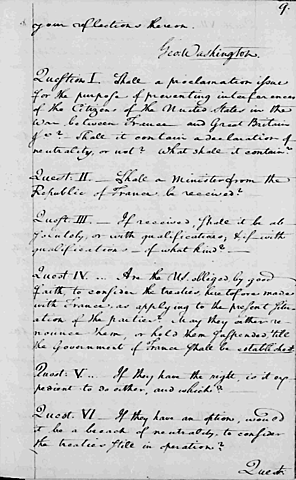 9.
your reflections thereon.
Geo. Washington.
Question I. Shall a proclamation issue
for the purpose of preventing interferences
of the Citizens of the United States in the
War between France and Great Britain
&c? Shall it contain a declaration of
neutrality, or not? What shall it contain?
Quest. II. — Shall a Minister from the
Republic of France be received?
Quest III. — If received, shall it be ab
solutely, or with qualifications, & if with
qualifications — of what kind?
Quest IV... Are the U.S. obliged by good
faith to consider the treaties heretofore made
with France as applying to the present situ
ation of the parties? may they either re
nounce them, or hold them suspended 'till
the Government of France shall be established
Quest. V... If they have the right, is it ex
pedient to do either, and which?
Quest. VI — If they have an option, would
it be a breach of neutrality to consider
the treaties still in operation?
Quest.